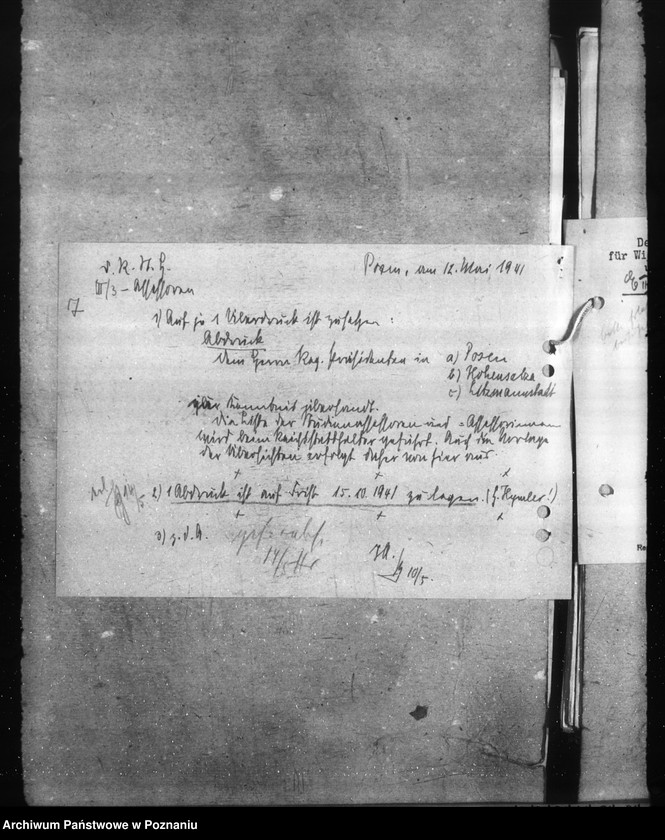 d. R. St. H.
III/3 - Assessoren
Posen, am 12. Mai 1941
17
1) Auf je 1 Überdruck ist zu setzen:
Abdruck
dem Herrn Reg. Präsidenten in a) Posen
b) Hohensalza
c) Litzmannstadt
zur Kenntnis übersandt.
Die Liste der Studienassessoren und -Assessorinnen
wird beim Reichsstatthalter geführt. Auf die Vorlage
der Übersichten erfolgt daher von hier aus.
2) 1 Abdruck ist auf Frist 15.10.1941 zu legen.
3) z.d.A.
14/5
I.A.
10/5.
De
für Wi
Re
Archiwum Państwowe w Poznaniu